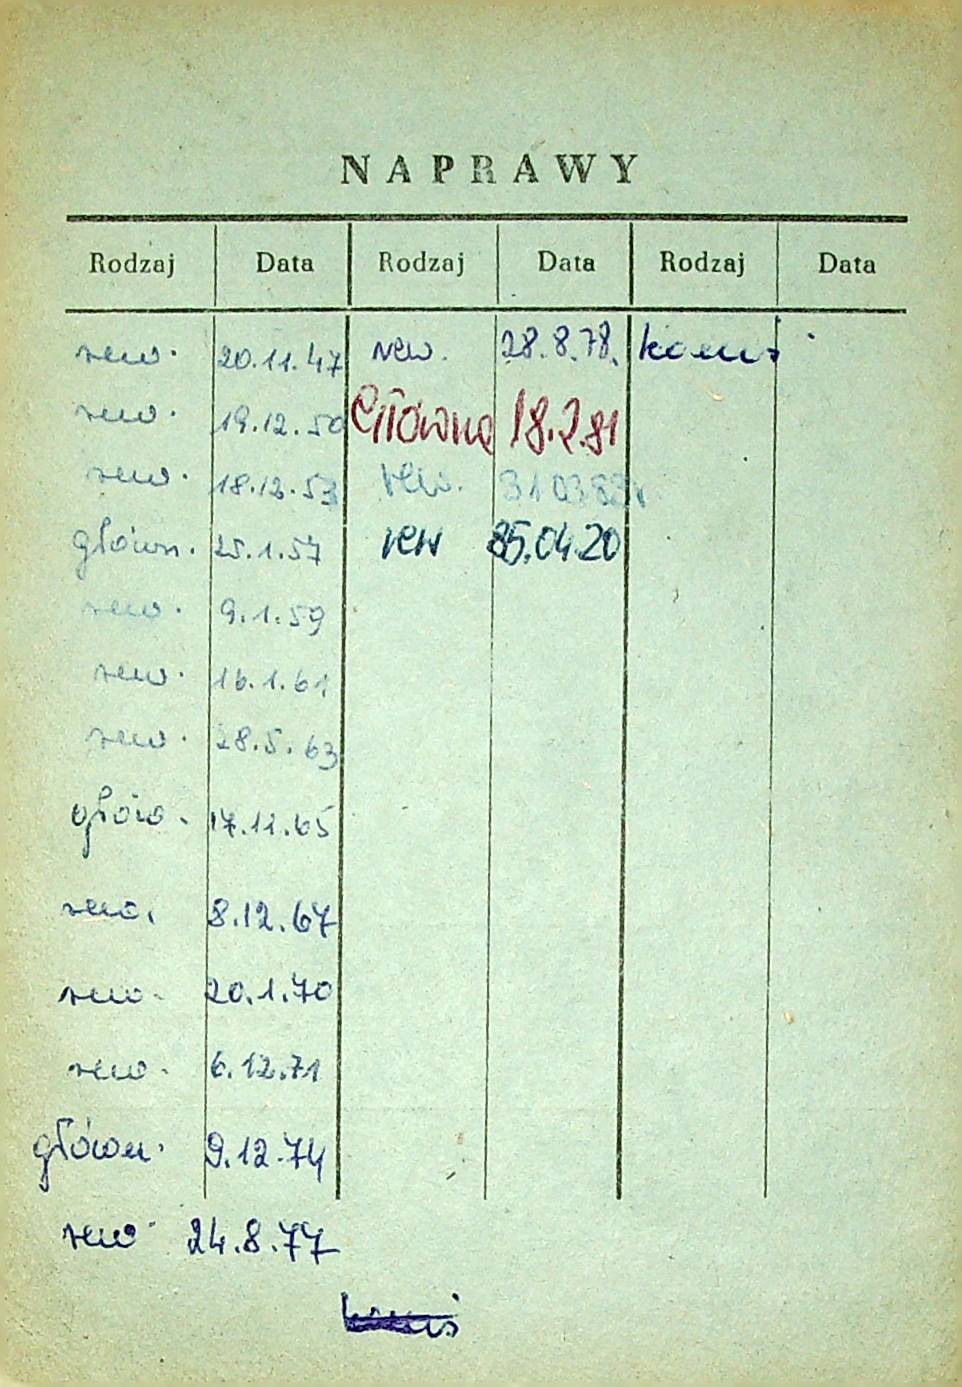 NAPRAWY
Rodzaj Data Rodzaj Data Rodzaj Data
rew. 20.11.47 rew. 28.8.78.
rew. 19.12.50 Główna 18.2.81
rew. 18.12.53 rew.
główn. 25.1.57 rew 85.04.20
rew. 9.1.59
rew. 16.1.61
rew. 28.5.63
głów. 17.11.65
rew. 8.12.67
rew. 20.1.70
rew. 6.12.71
główn. 9.12.74
rew. 24.8.77